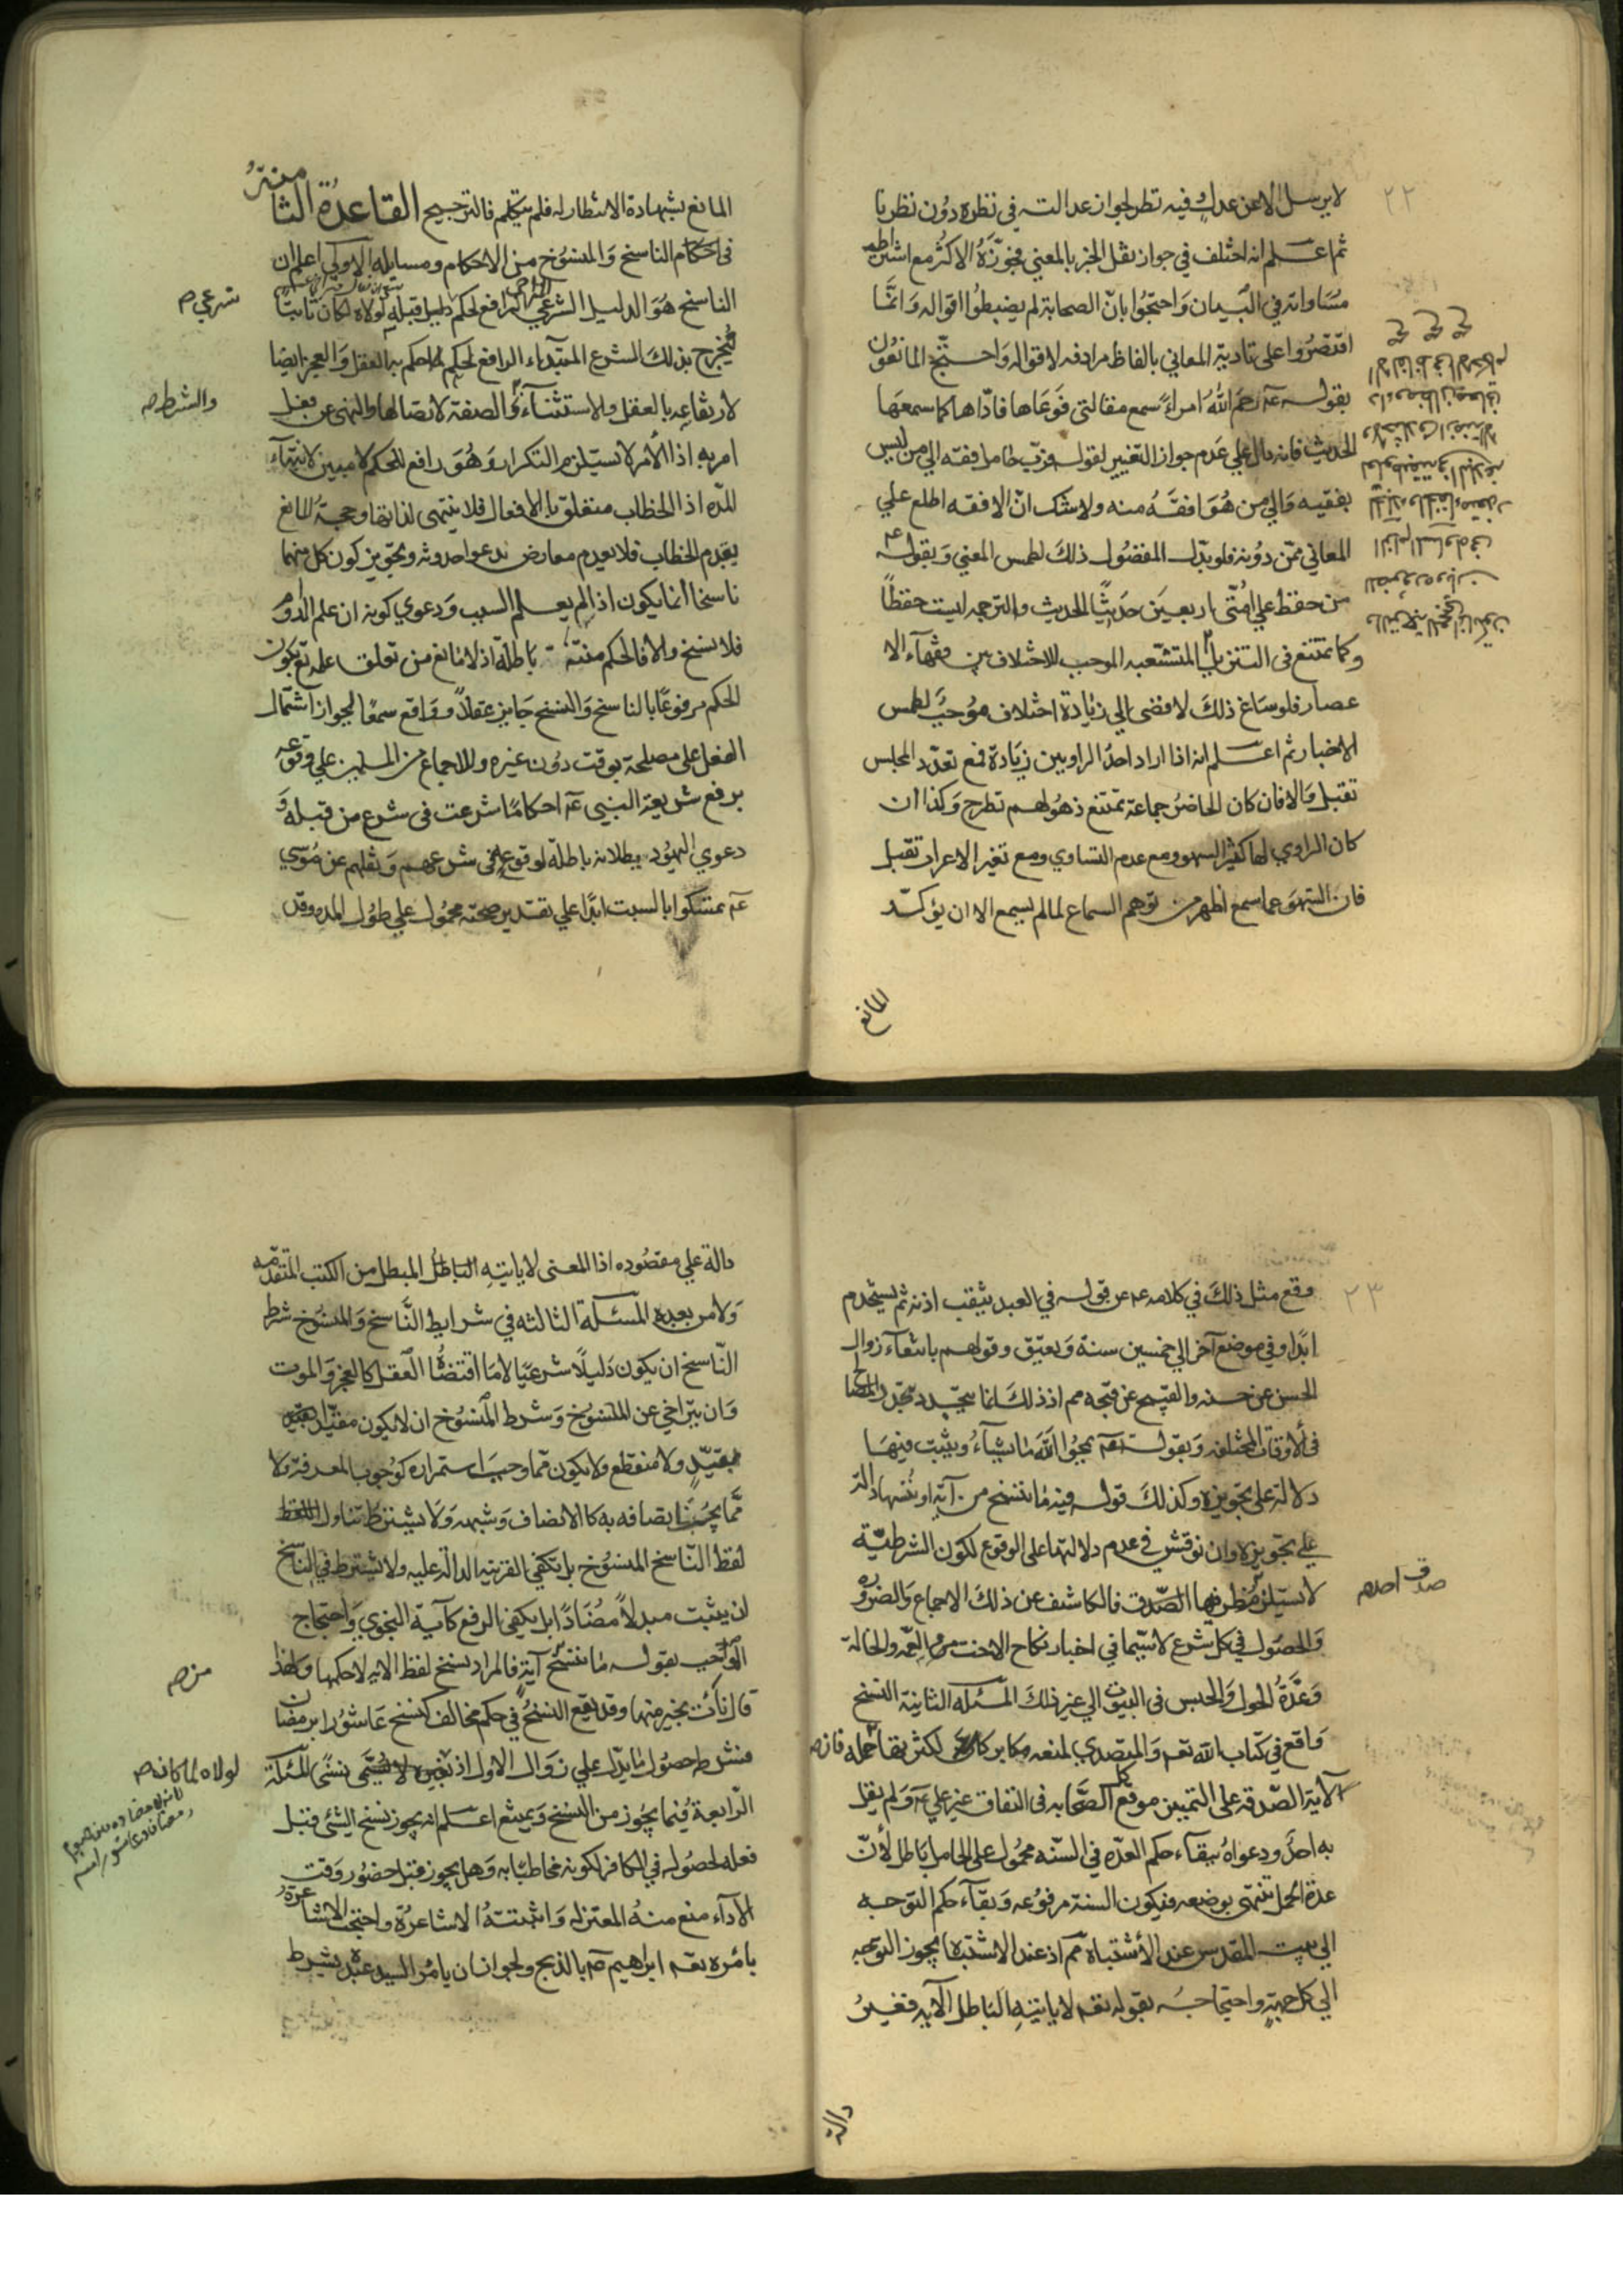 ٢٢
لا يرسل الا عن عدل وفيه نظر لجواز عدالته في نظره دون نظرنا
ثم اعلم انه اختلف في جواز نقل الخبر بالمعني فجوزه الاكثر مع اشتراط
مساواته في البيان واحتجوا بان الصحابة لم يضبطوا اقواله وانما
اقتصروا على تادية المعاني بالفاظ مرادفه لاقواله واحتج المانعون
بقوله عم رحم الله امراء سمع مقالتي فوعاها فاداها كما سمعها
الحديث فانه دال علي عدم جواز التغيير لقوله فرب حامل فقه الي من ليس
بفقيه والي من هو افقه منه ولا شك ان الافقه اطلع علي
المعاني ممن دونه فلو بدل المفضول ذلك لطمس المعني وبقوله عم
من حفظ علي امتي اربعين حديثا الحديث والترجمه ليست حفظا
وكما تمتنع في التنزيل المتشعبه الموجب للاختلاف بين فقهآء الا
عصار فلو ساغ ذلك لافضى الي زيادة اختلاف موجب لطمس
الاخبار ثم اعلم انه اذا اراد احد الراويين زيادة فمع تعدد المجلس
تقبل والا فان كان الحاضر جماعة تمتنع ذهولهم تطرح وكذا ان
كان الراوي لها كثير السهو ومع عدم التساوي ومع تغير الاعراب تقبل
فان السهو عما سمع اظهر من توهم السماع لما لم يسمع الا ان يؤكد
المانع
المانع بشهادة الانظار له فلم يتكلم فالترجيح القاعدة الثامنة
في احكام الناسخ والمنسوخ من الاحكام ومسايله الاولي اعلم ان
الناسخ هو الدليل الشرعي الرافع لحكم دليل قبله لولاه لكان ثابتا
شرعي صح
فيخرج بذلك الشرع المبتداء الرافع لحكم لما حكم به العقل والعجز ايضا
لارتفاعه بالعقل ولا ستثناء والصفة لاتصالها والنهى عن فعل
والشرط صح
امر به اذ الامر لا يستلزم التكرار وهو رافع للحكم لا مبين لانتهاء
المده اذ الخطاب متعلق بالافعال فلا ينتهى لذاتها وحجة المانع
بقدم الخطاب فلا يعدم معارض بدعوا حدوثه وتجويز كون كل منهما
ناسخا انما يكون اذا لم يعلم السبب ودعوي كونه ان علم الدوام
فلا نسخ والا فالحكم منته باطلة اذ لا مانع من تعلق علمه تع بكون
الحكم مرفوعا بالناسخ والنسخ جايز عقلا وواقع سمعا لجواز اشتمال
الفعل على مصلحة بوقت دون غيره وللاجماع من المسلمين علي وقوعه
برفع شريعة النبي عم احكاما شرعت في شرع من قبله و
دعوي اليهود بطلانه باطلة لوقوعه في شرعهم ونقلهم عن موسي
عم تمسكوا بالسبت ابدا علي تقدير صحته محمول علي طول المده وقد
٢٣
وقع مثل ذلك في كلامه عم عن قوله في العبد يثقب اذنه ثم يستخدم
ابدا وفي موضع آخر الي خمسين سنة ويعتق وقولهم بانتفاء زوال
الحسن عن حسنه والقبيح عن قبحه مم اذ ذلك انما يتجدد بتجدد المصالح
في الاوقات المختلفه وبقوله تعم يمحوا الله ما يشاء ويثبت فيها
دلالة على تجويزه وكذلك قوله فيه ما ننسخ من آية او ننسها دالة
علي تجويزه وان نوقش في عدم دلالتها على الوقوع لكون الشرطية
لا يستلزم صدق احدهما الصدق فالكاشف عن ذلك الاجماع والضروره
صدق احد صح
والحصول في كل شرع لا سيما في اخبار نكاح الاخت والعمه والخالة
وعدة الحول والحبس في البيوت الي غير ذلك المسئله الثانية النسخ
واقع في كتاب الله تعم والمتصدي لمنعه مكابر كثر نقلة فان صح
آلاية الصدقه علي التمييز موقع الصحابه في النفاق غير علي عم ولم يقل
به احد ودعواه ببقاء حكم العده في السنه محمول على الحامل باطل لان
عدة الحمل تنتهى بوضعه فيكون السنة مرفوعه وبقآء حكم التوجه
الي بيت المقدس عند الاشتباه مم اذ عند الاشتباه يجوز التوجه
الي كل جهة واحتجاجه بقوله تعم لا ياتيه الباطل الآيه فغير
دالة
دالة علي مقصوده اذ المعنى لا ياتيه الباطل المبطل من الكتب المتقدمه
ولا من بعده المسئلة الثالثه في شرايط الناسخ والمنسوخ شرط
الناسخ ان يكون دليلا شرعيا لا ما اقتضاه العقل كالعجز والموت
وان يتراخي عن المنسوخ وشرط المنسوخ ان لا يكون مقيدا بقيد
ولا منقطع ولا يكون مما وجب استمراره كوجوب المعرفة ولا
مما يجب اتصافه به كالانصاف وشبهه ولا يشترط تناول اللفظ
لفظ الناسخ المنسوخ بل تكفي القرينه الدالة عليه ولا يشترط في الناسخ
ان يثبت مبدلا مضادا بل يكفي الرفع كآية النجوي واحتجاج
الواجب بقوله ما ننسخ آية فالمراد بنسخ لفظ الايه لا حكمها ولهذا
من صح
قال نأت بخير منها وقد يقع النسخ في حكم مخالف كنسخ عاشورا برمضان
فنشرط حصول ما يدل علي زوال الاول اذ لا يسمى نسخا المسئلة
لولاه لما كان صح
الرابعة فيما يجوز من النسخ ويمتنع اعلم انه يجوز نسخ الشئ قبل
فعله لحصوله في الكافر لكونه مخاطبا به وهل يجوز قبل حضور وقت
الآداء منع منه المعتزله واثبتته الاشاعرة واحتجت الاشاعرة
بامره تعم ابراهيم عم بالذبح ولجواز ان يامر السيد عبده بشرط